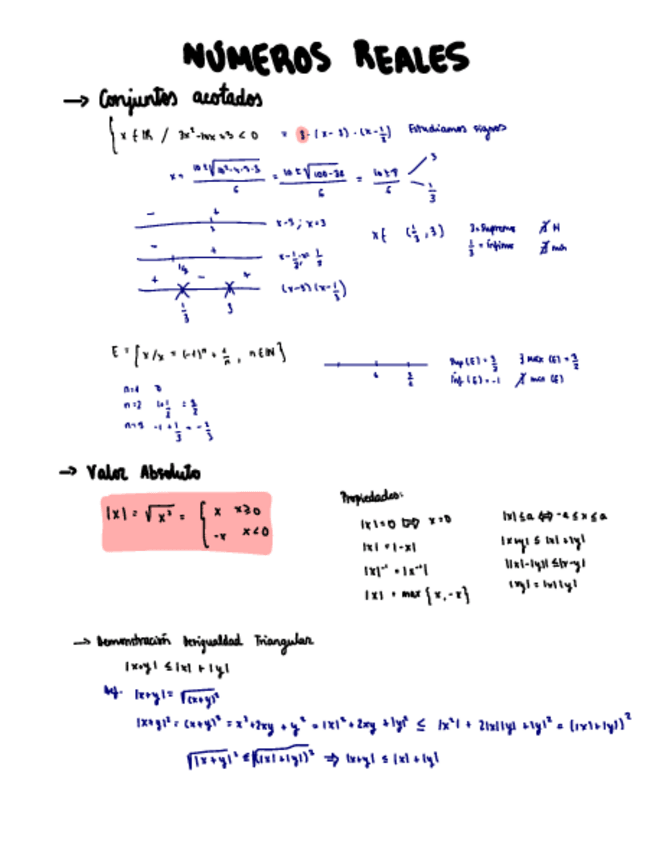 NÚMEROS REALES
→ Conjuntos acotados
{x ∈ ℝ / 3x²-10x+3<0 = 3·(x-3)·(x-1/3) Estudiamos signos
x = (10±√(10²-4·3·3))/6 = (10±√(100-36))/6 = (10±8)/6 3 1/3
- + 3 x-3; x=3
x ∈ (1/3, 3) 3=Supremo ∄ M
1/3 = ínfimo ∄ mín
- + 1/3 x-1/3; x=1/3
+ - + (x-3)(x-1/3)
1/3 3
E = {x/x = (-1)ⁿ + 1/n, n∈ℕ}
Sup(E) = 3/2 ∃ max(E) = 3/2
Inf(E) = -1 ∄ min(E)
n=1 0
n=2 1+1/2 = 3/2
n=3 -1+1/3 = -2/3
→ Valor Absoluto
|x| = √x² = { x x≥0
-x x<0
Propiedades:
|x|=0 ⇔ x=0
|x| = |-x|
|x|⁻¹ = |x⁻¹|
|x| = max{x,-x}
|x|≤a ⇔ -a≤x≤a
|x+y| ≤ |x|+|y|
||x|-|y|| ≤ |x-y|
|xy| = |x||y|
→ Demostración Desigualdad Triangular
|x+y| ≤ |x| + |y|
|x+y| = √(x+y)²
|x+y|² = (x+y)² = x²+2xy+y² = |x|²+2xy+|y|² ≤ |x²|+2|x||y|+|y|² = (|x|+|y|)²
√|x+y|² ≤ √(|x|+|y|)² ⇒ |x+y| ≤ |x|+|y|